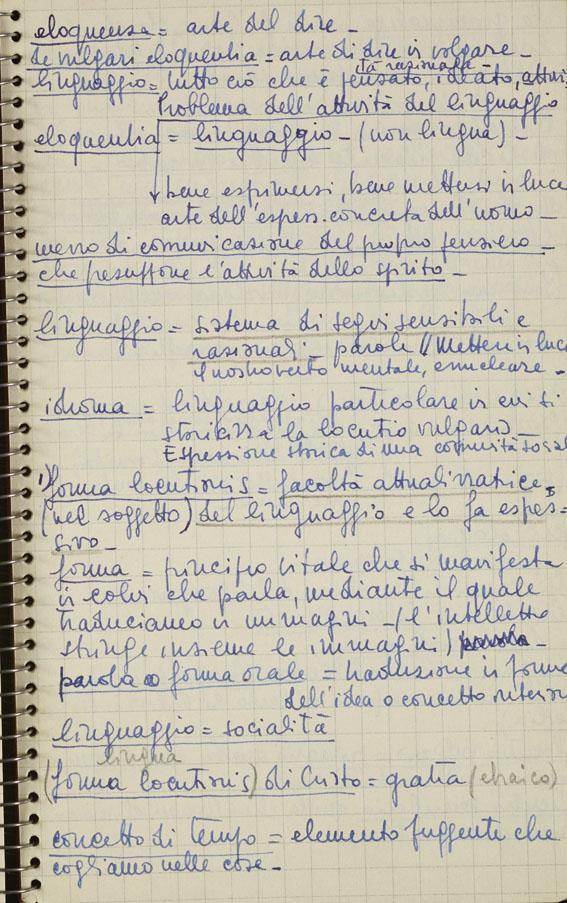 eloquenza = arte del dire -
de vulgari eloquentia = arte di dire in volgare -
tà razionale -
linguaggio = tutto ciò che è pensato, ideato, attivi
Problema dell'attività del linguaggio
eloquentia = linguaggio - (non lingua) -
bene esprimersi, bene mettersi in luce
arte dell'espress. concreta dell'uomo -
mezzo di comunicazione del proprio pensiero -
che presuppone l'attività dello spirito -
linguaggio = sistema di segni sensibili e
razionali - parole // Mettere in luce
il nostro verbo mentale, enucleare -
idioma = linguaggio particolare in cui si
storicizza la locutio vulgaris -
Espressione storica di una comunità social
1) forma locutionis = facoltà attualizzatrice,
(nel soggetto) del linguaggio e lo fa espres=
sivo -
forma = principio vitale che si manifesta
in colui che parla, mediante il quale
traduciamo in immagini - (l'intelletto
stringe insieme le immagini) parola -
parola o forma orale = traduzione in forme
dell'idea o concetto interior
linguaggio = socialità
lingua
(forma locutionis) di Cristo = gratia (ebraico)
concetto di tempo = elemento fuggente che
cogliamo nelle cose -